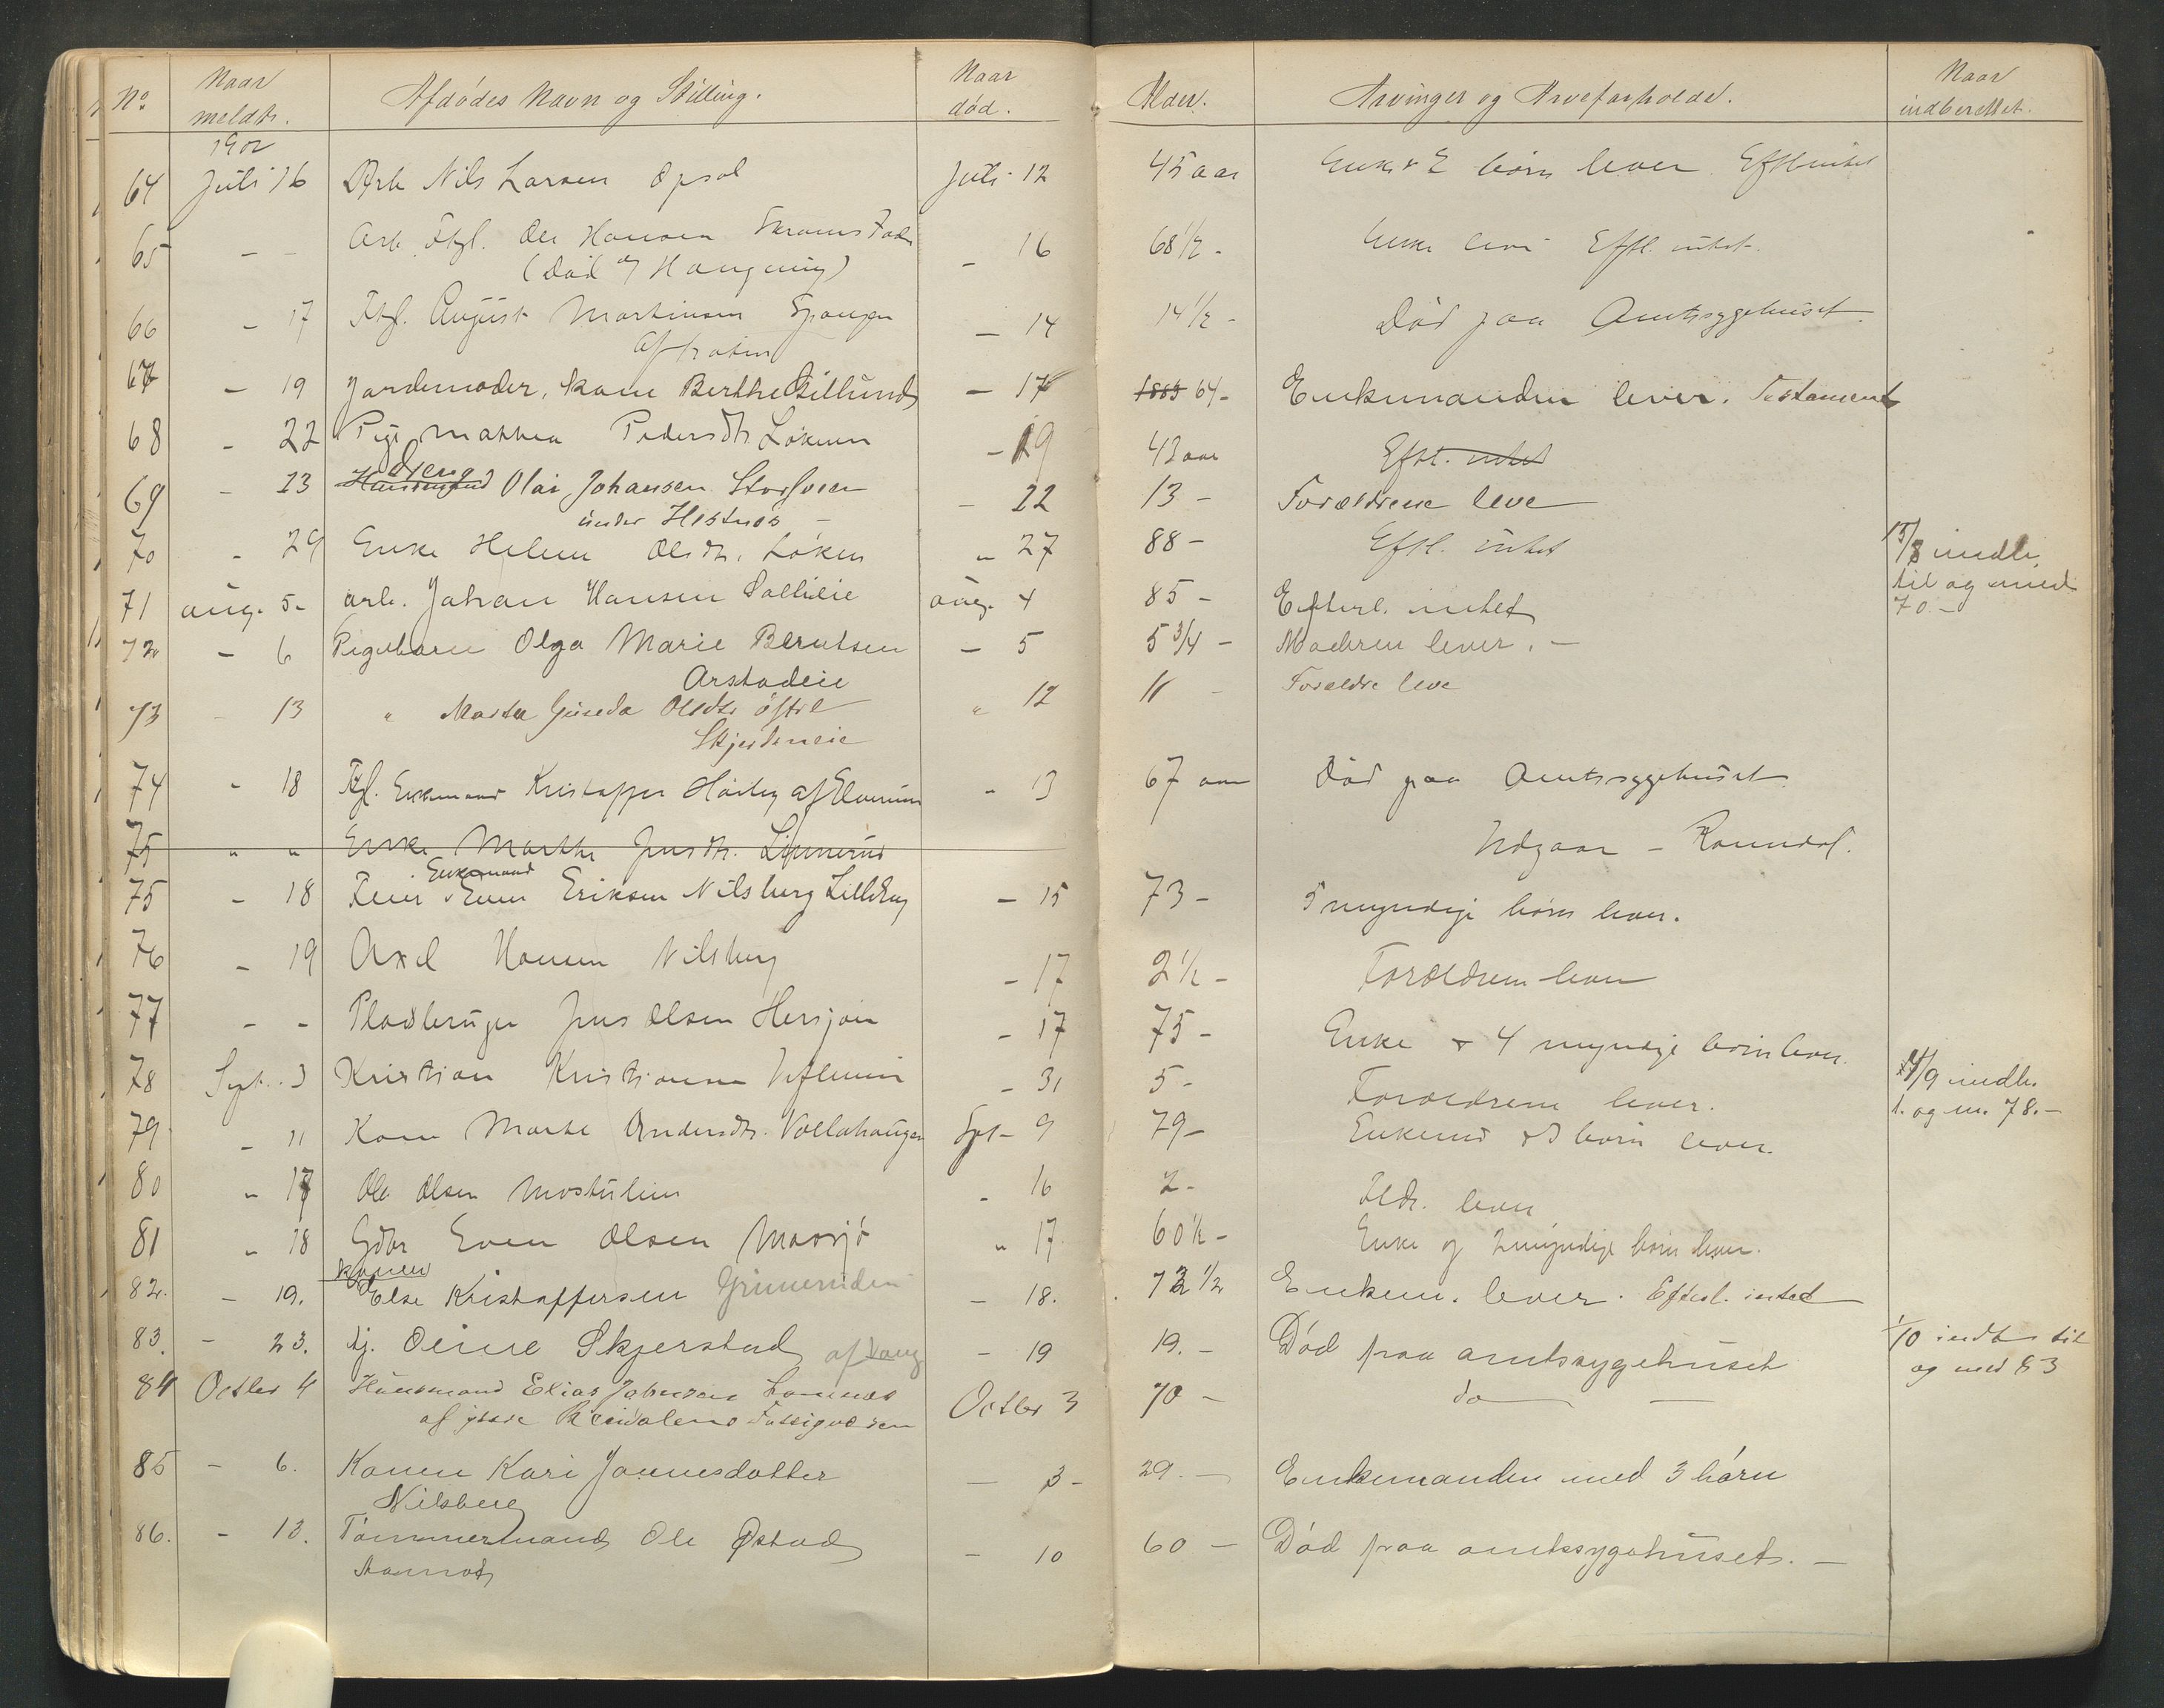 No. Naar meldt. Afdødes Navn og Stilling. Naar død. Alder. Arvinger og Arveforholde. Naar indberettet.
1902
64 Juli 16 Arb Nils Larsen Opsal Juli 12 45 aar Enke + 2 børn lever Eftl intet
65 - - Arb. Ftgl. Ole Hansen Skramstad - 16 68 1/2 - Enke lever Eftl. intet.
(Død af Hængning)
66 - 17 Ftgl. August Martinsen Spangen - 14 14 1/2 - Død paa Amtssygehuset
af
67 - 19 Jordemoder, kone Berthe - 17 1883 64 - Enkemanden lever. Testament
68 - 22 Pige Mathea Pedersdtr. Løkken - 19 42 aar Eftl. intet
Dreng
69 - 23 Husmand Olai Johansen - 22 13 - Forældrene leve
under Hestnæs -
70 - 29 Enke Helene Olsdtr. Løken " 27 88 - Eftl. intet 15/8 indb.
til og med
70. -
71 aug. 5 - arb. Johan Hansen aug. 4 85 - Efterl. intet
72 - 6 Pigebarn Olga Marie Berntsen - 5 5 3/4 - Moderen lever. -
Arstadeie
73 - 13 " Marta Olsdtr østre " 12 11 - Forældre leve
74 - 18 Ftgl. Enkemand Kristoffer af Elverum - 13 67 aar Død paa Amtssygehuset
75 " " Enke Marthe Jensdtr. Linnerud Udgaar - Romedal.
Enkemand
75 - 18 Even Eriksen Nilsberg - 15 73 - 5 myndige børn lever.
76 - 19 Axel Hansen Nilsberg - 17 2 1/2 - Forældrene lever
77 - - Pladsbruger Jens Olsen - 17 75 - Enke + 4 myndige børn lever.
78 Sept. 3 Kristian Kristiansen - 31 5 - Forældrene lever. 14/9 indb.
t. og m. 78. -
79 - 11 Kone Marte Andersdtr. Vollahaugen Spt - 9 79 - Enkemd + 3 børn lever.
80 " 17 Ole Olsen - 16 2 - Fldr. lever
81 " 18 Gdbr Even Olsen Mossjø " 17 60 1/2 - Enke og 2 myndige børn lever.
konen
82. - 19. Else Kristoffersen - 18. 72 1/2 Enkem. lever. Efterl. intet
83. - 23. Skjerstad af Vang - 19 19. - Død paa amtssygehuset 1/10 indb til
og med 83
84 Octbr 4 Husmand Elias Johnsen Octbr 3 70 - do -
af Rendalens Fattigvæsen
85 - 6. Konen Kari Jonnesdatter - 3 - 29. - Enkemanden med 3 børn
Nilsberg
86. - 13. Tømmermand Ole Østad - 10 60 - Død paa amtssygehuset. -
Aamot